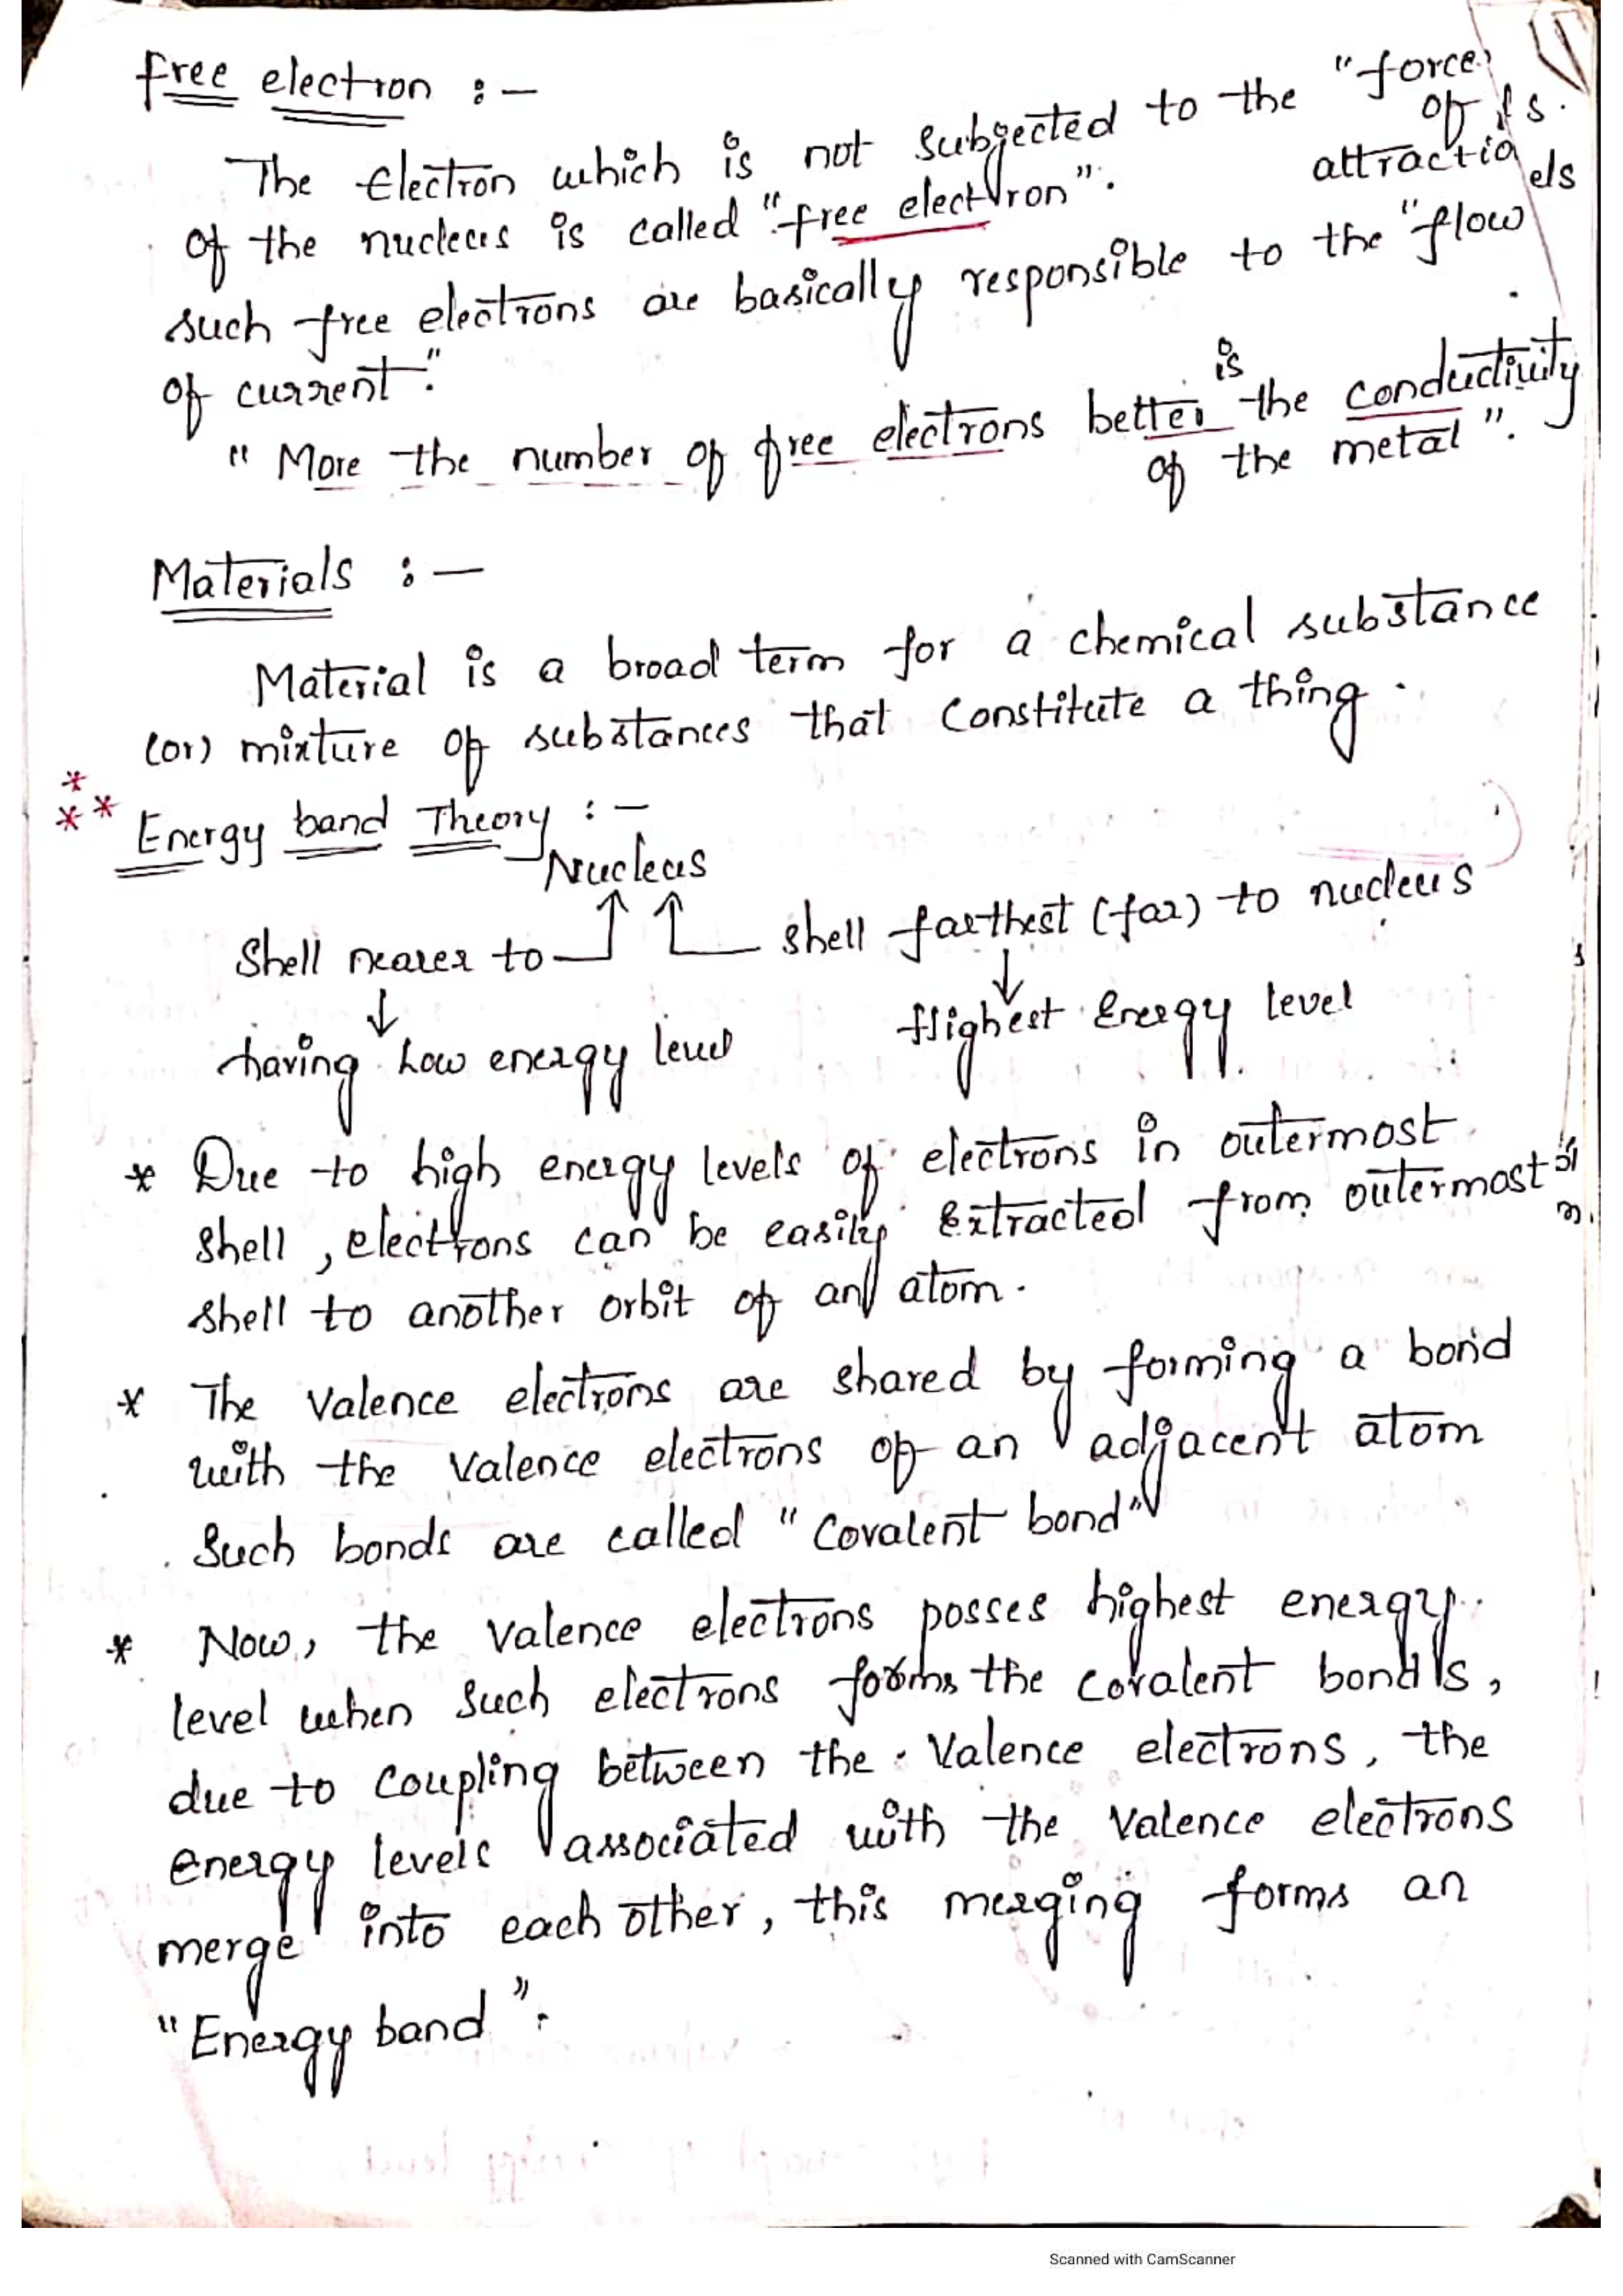 free electron :-
The Electron which is not subjected to the "force
of the nucleus is called "free electron". attractio
such free electrons are basically responsible to the "flow
of current".
" More the number of free electrons better is the conductivity
of the metal ".
Materials :-
Material is a broad term for a chemical substance
(or) mixture of substances that constitute a thing .
*
** Energy band Theory :-
Nucleus
Shell nearer to shell farthest (far) to nucleus
↓ ↓
having Low energy level Highest Energy level
* Due to high energy levels of electrons in outermost
shell , electrons can be easily Extracted from outermost
shell to another orbit of an atom .
* The Valence electrons are shared by forming a bond
with the Valence electrons of an adjacent atom
Such bonds are called " Covalent bond"
* Now, the Valence electrons posses highest energy
level when such electrons forms the covalent bonds,
due to coupling between the Valence electrons, the
energy levels associated with the Valence electrons
merge into each other, this merging forms an
"Energy band ".
Scanned with CamScanner